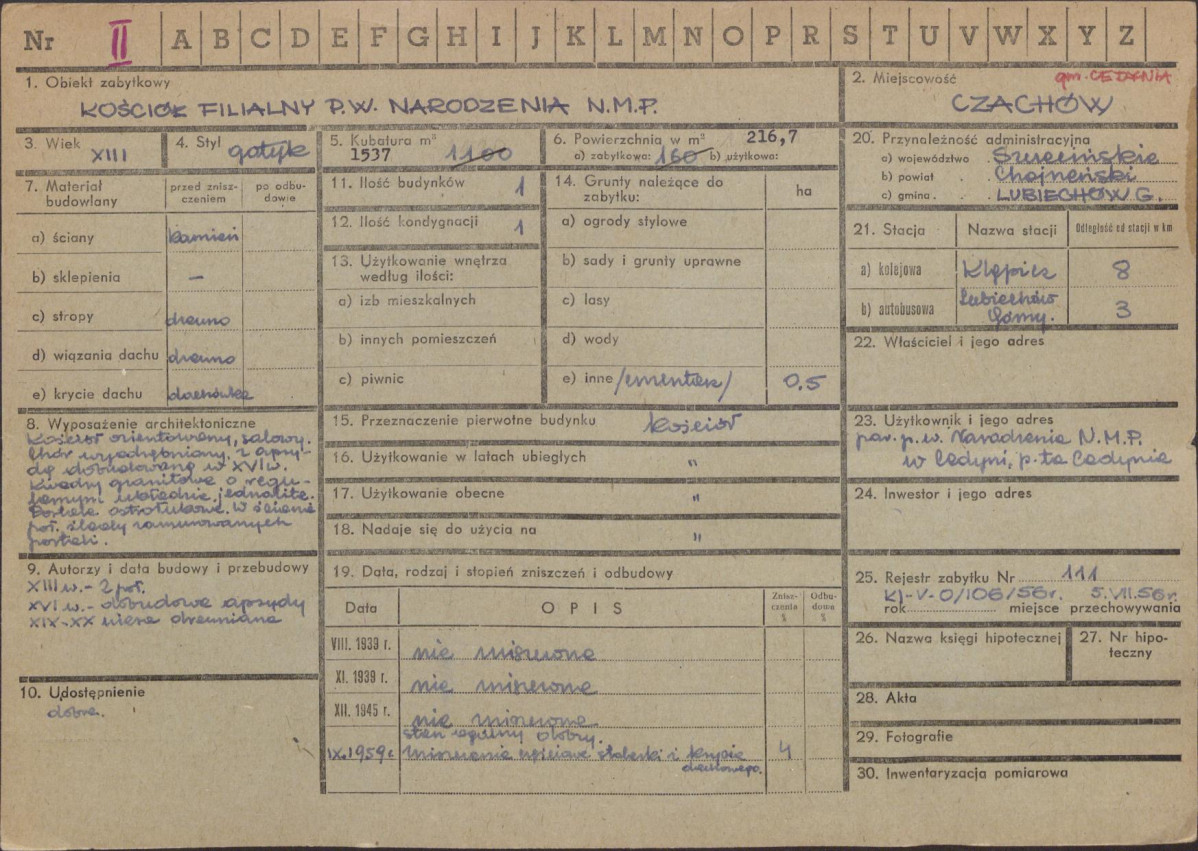 Nr II A B C D E F G H I J K L M N O P R S T U V W X Y Z
1. Obiekt zabytkowy
KOŚCIÓŁ FILIALNY P.W. NARODZENIA N.M.P.
2. Miejscowość gm. CEDYNIA
CZACHÓW
3. Wiek XIII
4. Styl gotyk
5. Kubatura m³
1537 1100
6. Powierzchnia w m² 216,7
a) zabytkowa: 160 b) użytkowa:
7. Materiał budowlany
przed zniszczeniem
po odbudowie
a) ściany kamień
b) sklepienia –
c) stropy drewno
d) wiązania dachu drewno
e) krycie dachu dachówka
8. Wyposażenie architektoniczne
Kościół orientowany, salowy.
Chór wyodrębniony, z apsy-
dą dobudowaną w XVI w.
Kwadry granitowe o regu-
larnym układzie, jednolite.
Portale ostrołukowe. W ścianie
poł. ślady zamurowanych
portali.
9. Autorzy i data budowy i przebudowy
XIII w. - 2 poł.
XVI w. - dobudowa apsydy
XIX-XX wieża drewniana
10. Udostępnienie
dobre.
11. Ilość budynków 1
12. Ilość kondygnacji 1
13. Użytkowanie wnętrza
według ilości:
a) izb mieszkalnych
b) innych pomieszczeń
c) piwnic
14. Grunty należące do
zabytku:
ha
a) ogrody stylowe
b) sady i grunty uprawne
c) lasy
d) wody
e) inne /cmentarz/ 0,5
15. Przeznaczenie pierwotne budynku kościół
16. Użytkowanie w latach ubiegłych "
17. Użytkowanie obecne "
18. Nadaje się do użycia na "
19. Data, rodzaj i stopień zniszczeń i odbudowy
Data OPIS Zniszczenia % Odbudowa %
VIII. 1939 r. nie zniszczone
XI. 1939 r. nie zniszczone
XII. 1945 r. nie zniszczone
stan ogólny dobry.
IX.1959 r. zniszczenie częściowe stolarki i krycia 4
dachowego.
20. Przynależność administracyjna
a) województwo Szczecińskie
b) powiat Chojeński
c) gmina LUBIECHÓW G.
21. Stacja Nazwa stacji Odległość od stacji w km
a) kolejowa Klępicz 8
b) autobusowa Lubiechów
Górny. 3
22. Właściciel i jego adres
23. Użytkownik i jego adres
par. p.w. Narodzenia N.M.P.
w Cedyni, p-ta Cedynia
24. Inwestor i jego adres
25. Rejestr zabytku Nr 111
Kl-V-0/106/56r. 5.VII.56r.
rok miejsce przechowywania
26. Nazwa księgi hipotecznej
27. Nr hipo-
teczny
28. Akta
29. Fotografie
30. Inwentaryzacja pomiarowa